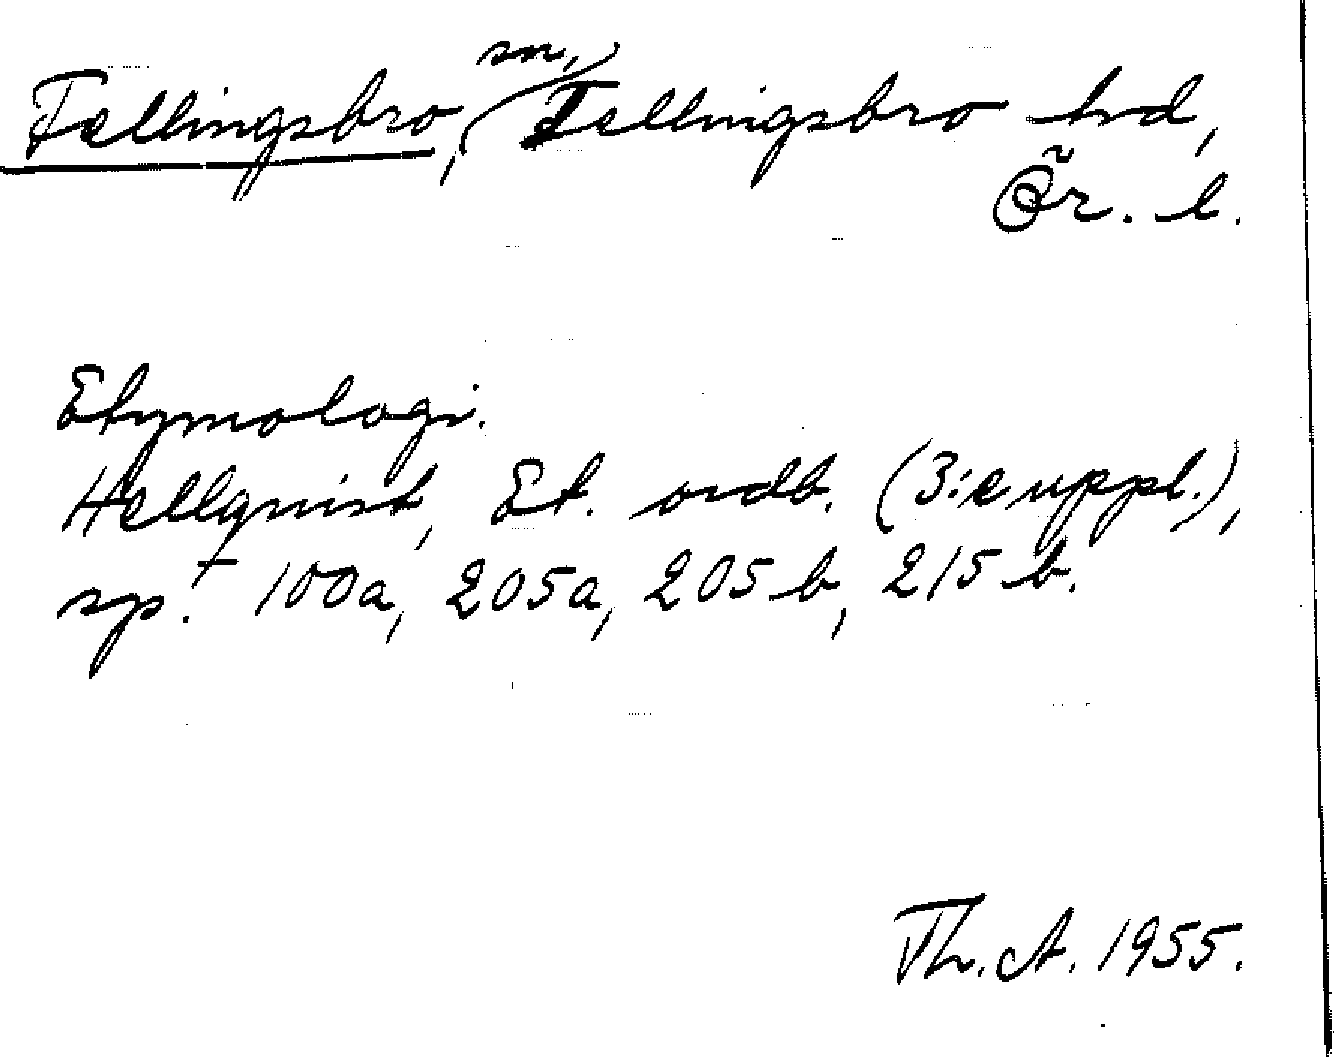 Fellingsbro, sn, Fellingsbro hd,
Ör. l.
Etymologi.
Hellquist, Et. ordb. (3:e uppl.),
sp. 100a, 205a, 205b, 215b.
Th. A. 1955.